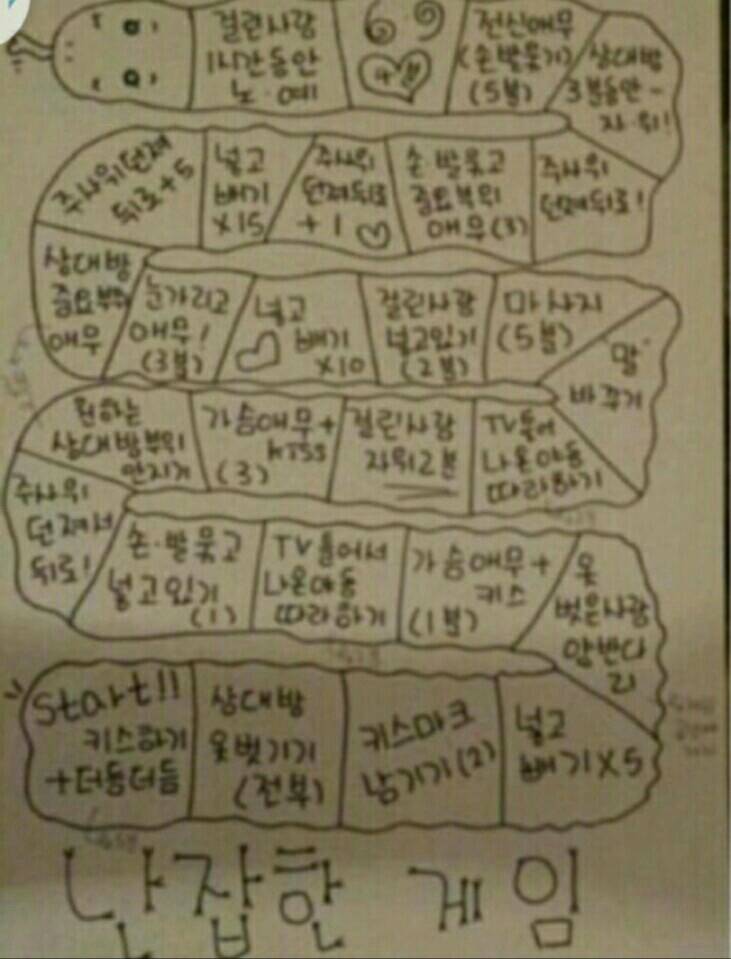 걸린사람
1시간동안
노·예
69
전신애무
(손발묶기)
(5분)
상대방
3분동안-
자·위!
주사위던져
뒤로+5
넣고
빼기
x15
주사위
던져뒤로
+1 ♡
손·발묶고
중요부위
애무(3)
주사위
던져뒤로!
상대방
중요부위
애무
눈가리고
애무!
(3분)
넣고
♡ 빼기
x10
걸린사람
넣고있기
(2분)
마사지
(5분)
"말"
바꾸기
원하는
상대방부위
만지기
가슴애무+
kiss
(3)
걸린사람
자위2분
TV틀어
나온야동
따라하기
주사위
던져서
뒤로!
손·발묶고
넣고있기
(1)
TV틀어서
나온야동
따라하기
가슴애무+
키스
(1분)
옷
벗은사람
start!!
키스하기
+더듬더듬
상대방
옷벗기기
(전부)
키스마크
남기기(2)
넣고
빼기x5
난잡한 게임